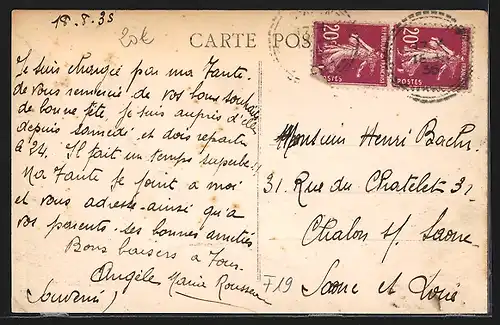 18.8.35
20k
CARTE POS
20c
POSTES
20c
POSTES
Je suis chargée par ma Tante
de vous remercier de vos bons souhaits
de bonne fête. Je suis auprès d'elle
depuis samedi et dois repartir
le 24. Il fait un temps superbe.
Ma Tante se joint à moi
et vous adresse ainsi qu'à
vos parents ses bonnes amitiés
Bons baisers à Tous
Angèle Marie Rousseau
Souvenir
Monsieur Henri Bachy.
31 Rue du Chatelet 31
Chalon s/ Saone
Saone et Loire
F19